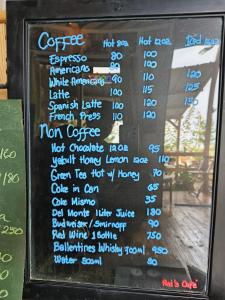 Coffee Hot 8oz Hot 12oz Iced 16oz
Espresso 80 100
Americano 80 110 120
White Americano 90 110 125
Latte 100 115 125
Spanish Latte 100 120 150
French Press 110 120
Non Coffee
Hot Chocolate 12oz 95
Yakult Honey Lemon 12oz 110
Green Tea Hot w/ Honey 70
Coke in Can 65
Coke Mismo 35
Del Monte 1 Liter Juice 180
Budweiser / Smirnoff 90
Red Wine 1 Bottle 750
Ballentines Whisky 700ml 950
Water 500ml 80
160
/80
250